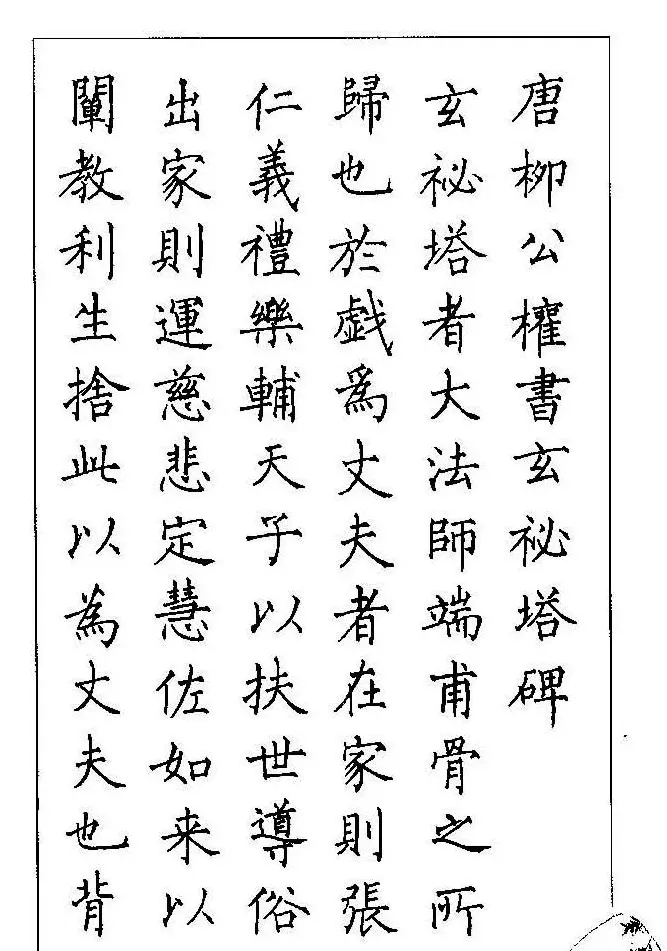 唐柳公權書玄祕塔碑
玄祕塔者大法師端甫骨之所
歸也於戯爲丈夫者在家則張
仁義禮樂輔天子以扶世導俗
出家則運慈悲定慧佐如来以
闡教利生捨此以為丈夫也背